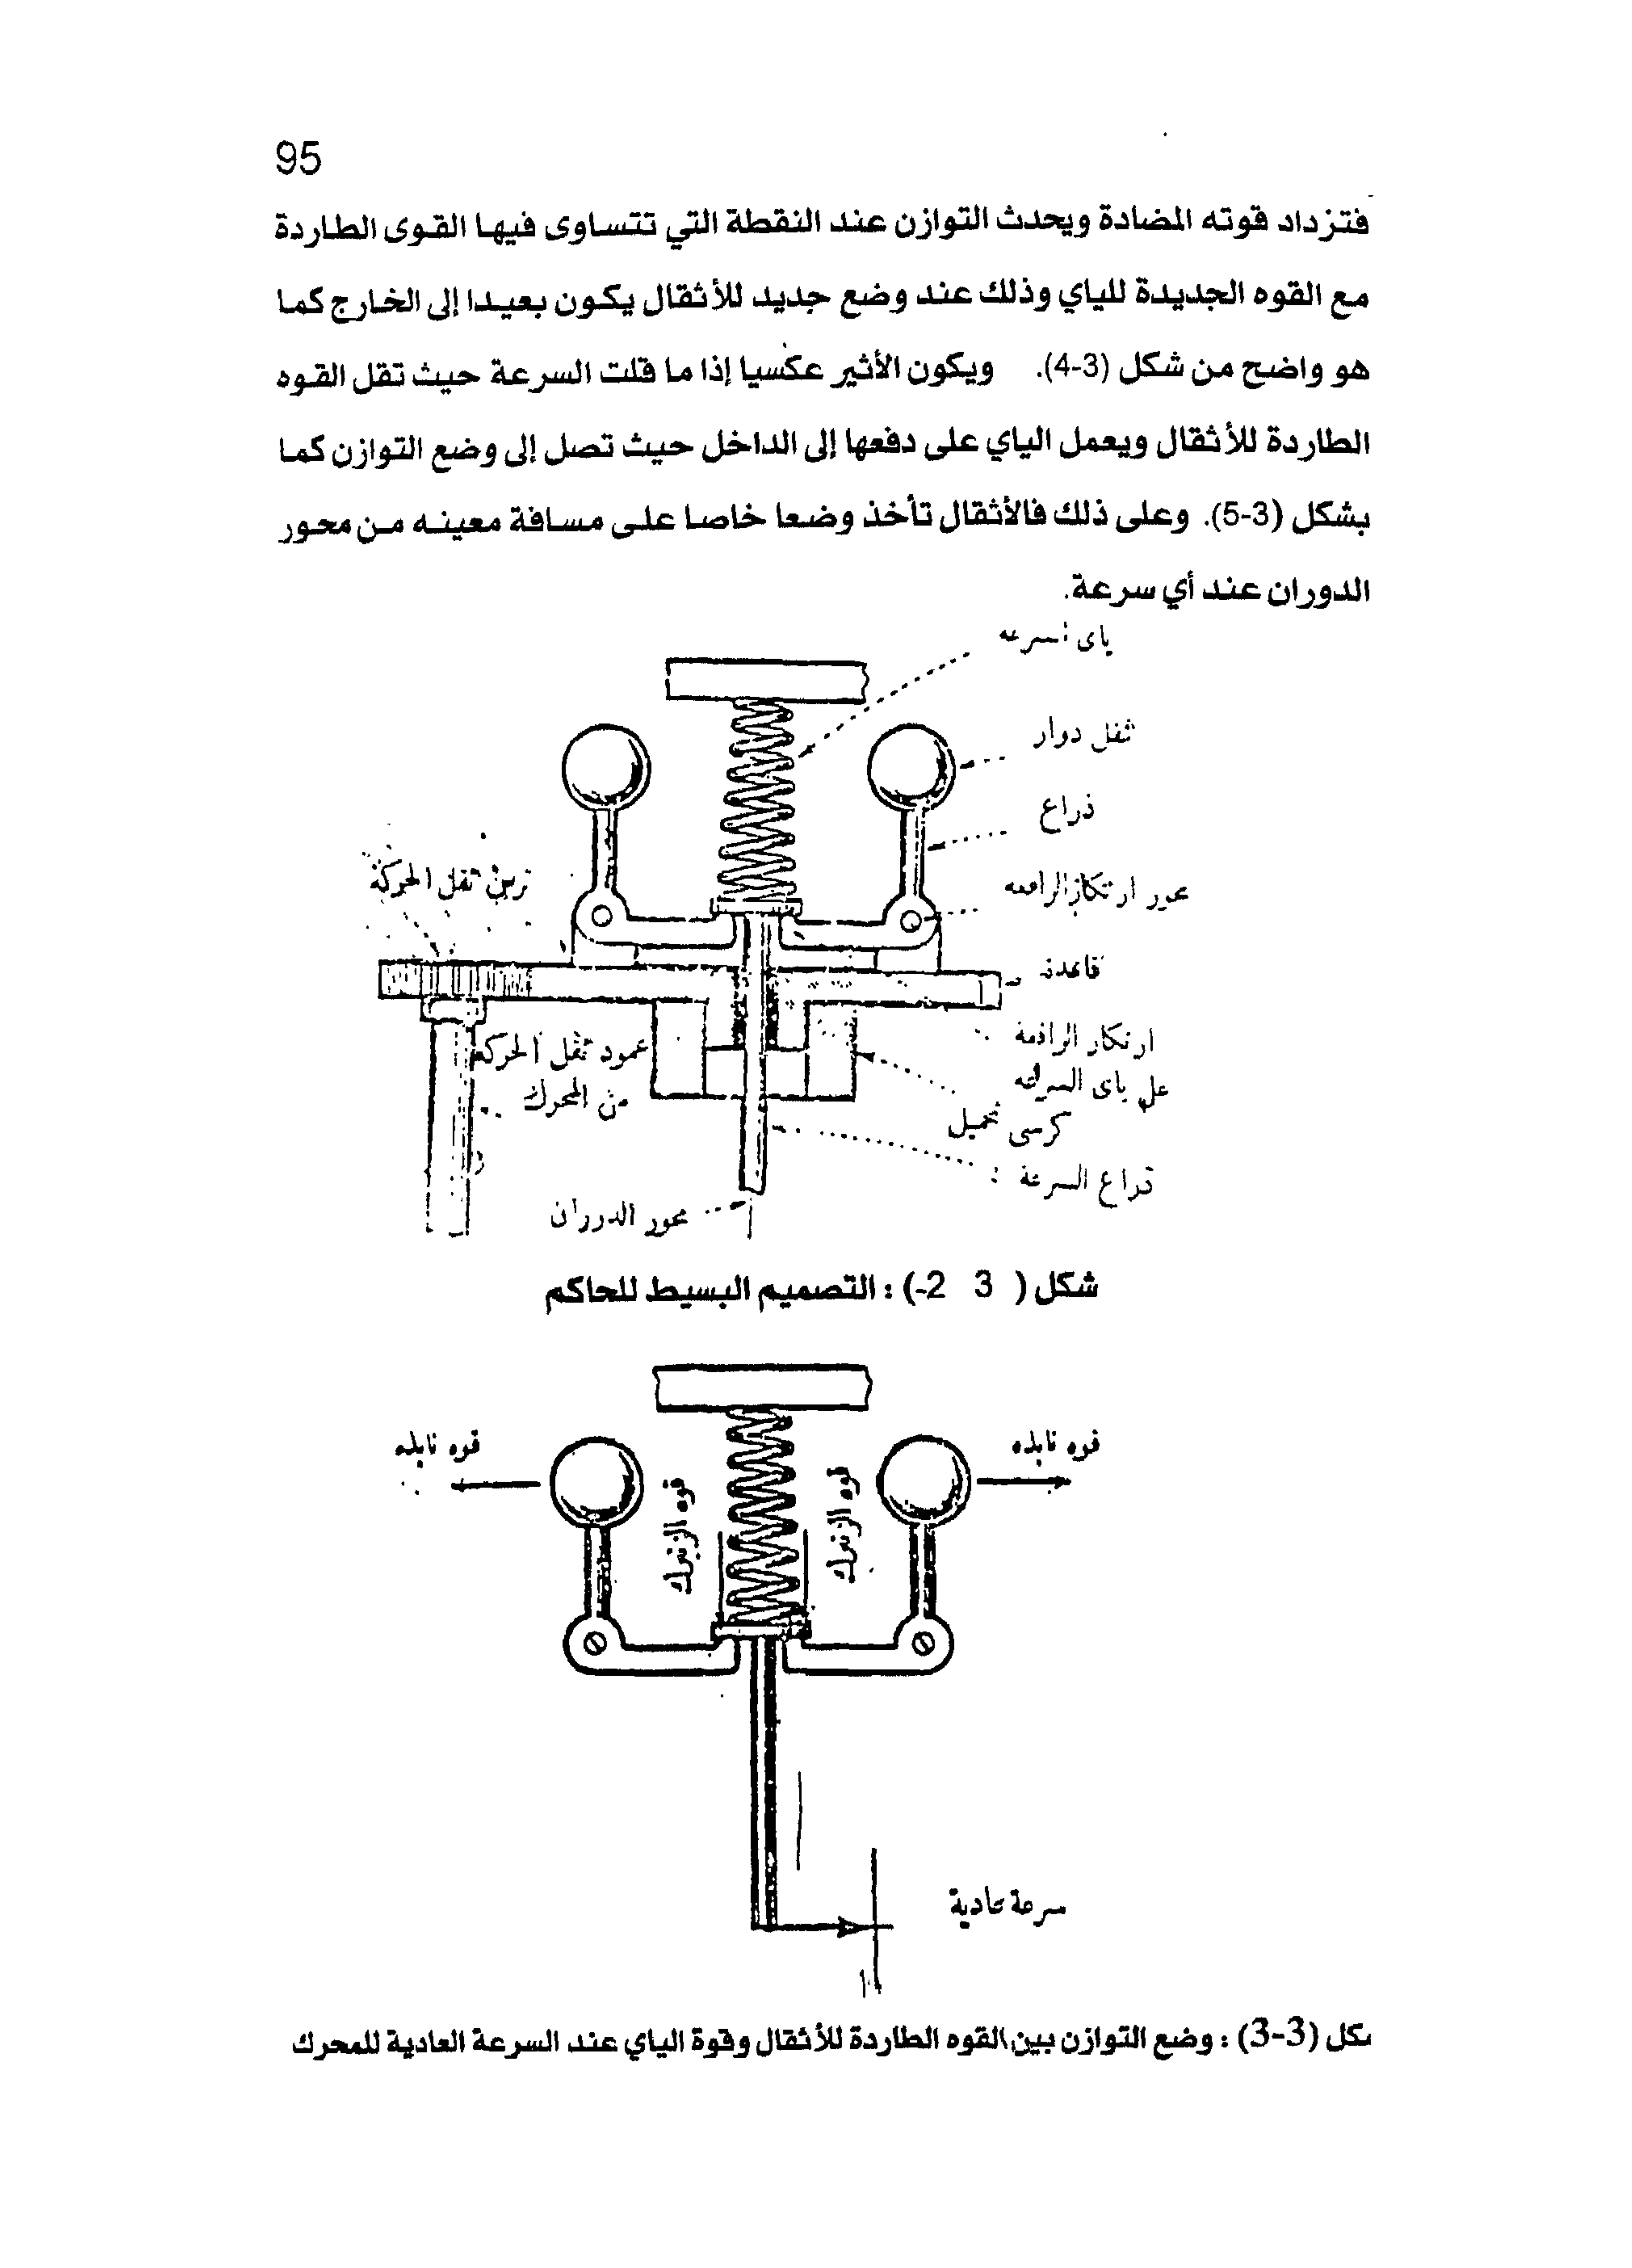 95
فتزداد قوته المضادة ويحدث التوازن عند النقطة التي تتساوى فيها القوى الطاردة
مع القوه الجديدة للياي وذلك عند وضع جديد للأثقال يكون بعيدا إلى الخارج كما
هو واضح من شكل (3-4). ويكون الأثير عكسيا إذا ما قلت السرعة حيث تقل القوه
الطاردة للأثقال ويعمل الياي على دفعها إلى الداخل حيث تصل إلى وضع التوازن كما
بشكل (3-5). وعلى ذلك فالأثقال تأخذ وضعا خاصا على مسافة معينه من محور
الدوران عند أي سرعة.
ياى السرعه
ثقل دوار
ذراع
محور ارتكاز الرافعه
ترس نقل الحركة
قاعدة
ارتكاز الرافعة
على ياى السرعه
عمود نقل الحركه
من المحرك
كرسى تحميل
ذراع السرعة
محور الدوران
شكل ( 3 2-) : التصميم البسيط للحاكم
قوه نابذه
قوه نابذه
قوه الزنبرك
قوه الزنبرك
سرعة عادية
كل (3-3) : وضع التوازن بين القوه الطاردة للأثقال وقوة الياي عند السرعة العادية للمحرك